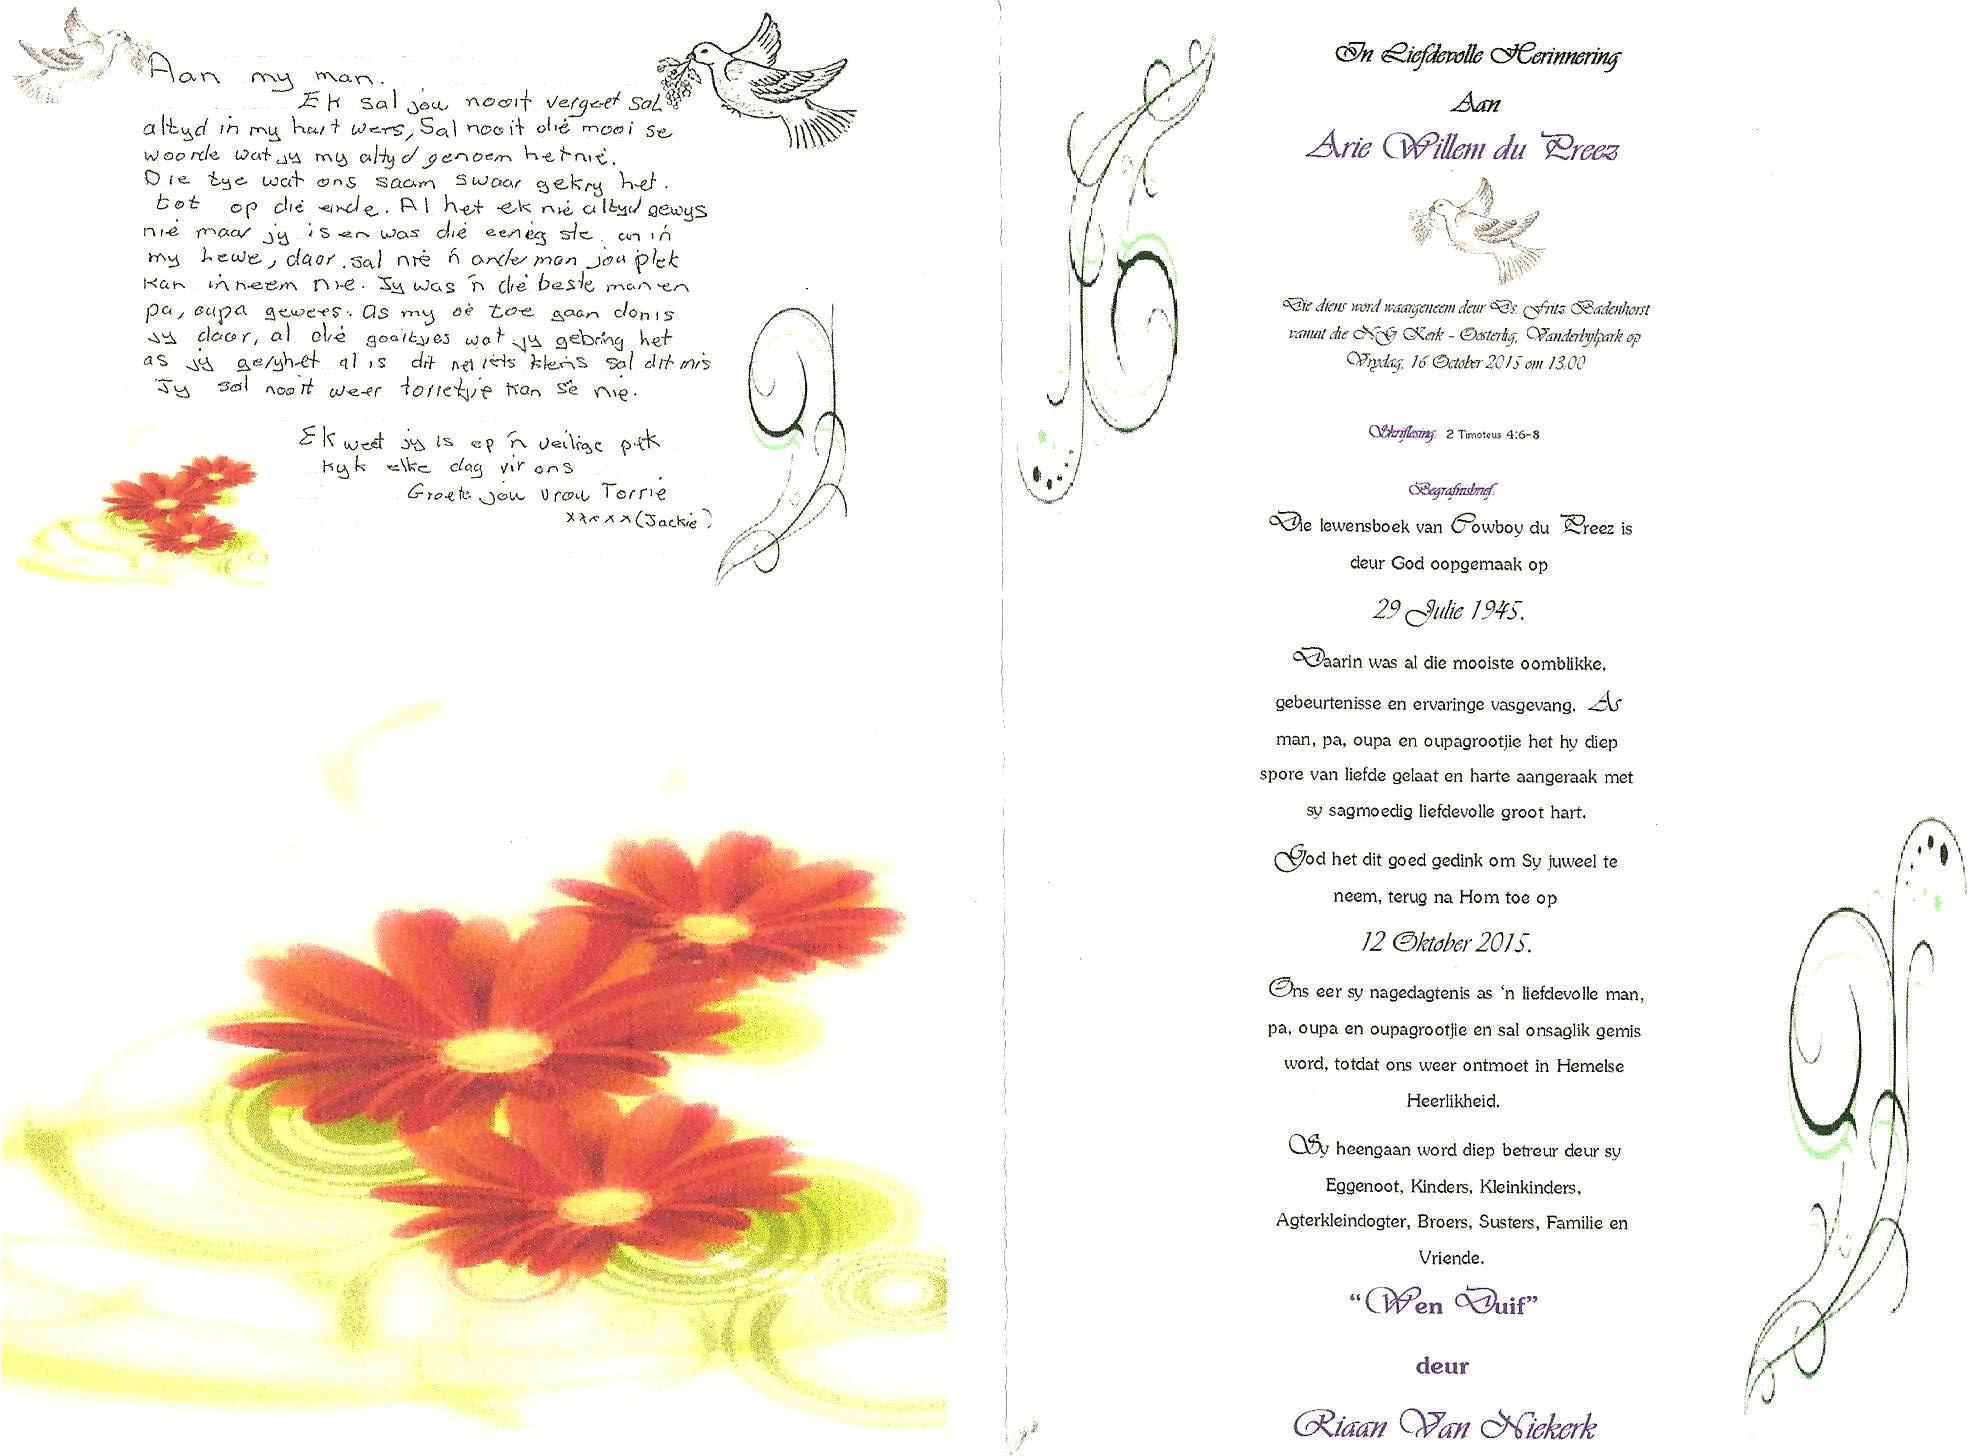 Aan my man.
Ek sal jou nooit vergeet sal
altyd in my hart wees, Sal nooit dié mooi se
woorde wat jy my altyd genoem het nié.
Die tye wat ons saam swaar gekry het.
tot op dié einde. Al het ek nié altyd gewys
nié maar jy is en was dié eenég ste man in
my lewe, daar sal nié 'n ander man jou plek
kan inneem nie. Jy was 'n dié beste man en
pa, oupa gewees. As my oë toe gaan donis
jy daar, al dié goeitjies wat jy gebring het
as jy gery het al is dit net iéts kleins sal dit mis
Jy sal nooit weer torrietjie kan sê nie.
Ek weet jy is op 'n veilige plek
kyk elke dag vir ons
Groete jou vrou Torrie
xxxxx (Jackie)
In Liefdevolle Herinnering
Aan
Arie Willem du Preez
Die diens word waargeneem deur Ds. Fritz Badenhorst
vanuit die NG Kerk - Oosterlig, Vanderbijlpark op
Vrydag, 16 October 2015 om 13.00
Skriflesing: 2 Timoteus 4:6-8
Begrafnisbrief:
Die lewensboek van Cowboy du Preez is
deur God oopgemaak op
29 Julie 1945.
Daarin was al die mooiste oomblikke,
gebeurtenisse en ervaringe vasgevang. As
man, pa, oupa en oupagrootjie het hy diep
spore van liefde gelaat en harte aangeraak met
sy sagmoedig liefdevolle groot hart.
God het dit goed gedink om Sy juweel te
neem, terug na Hom toe op
12 Oktober 2015.
Ons eer sy nagedagtenis as 'n liefdevolle man,
pa, oupa en oupagrootjie en sal onsaglik gemis
word, totdat ons weer ontmoet in Hemelse
Heerlikheid.
Sy heengaan word diep betreur deur sy
Eggenoot, Kinders, Kleinkinders,
Agterkleindogter, Broers, Susters, Familie en
Vriende.
"Wen Duif"
deur
Riaan Van Niekerk